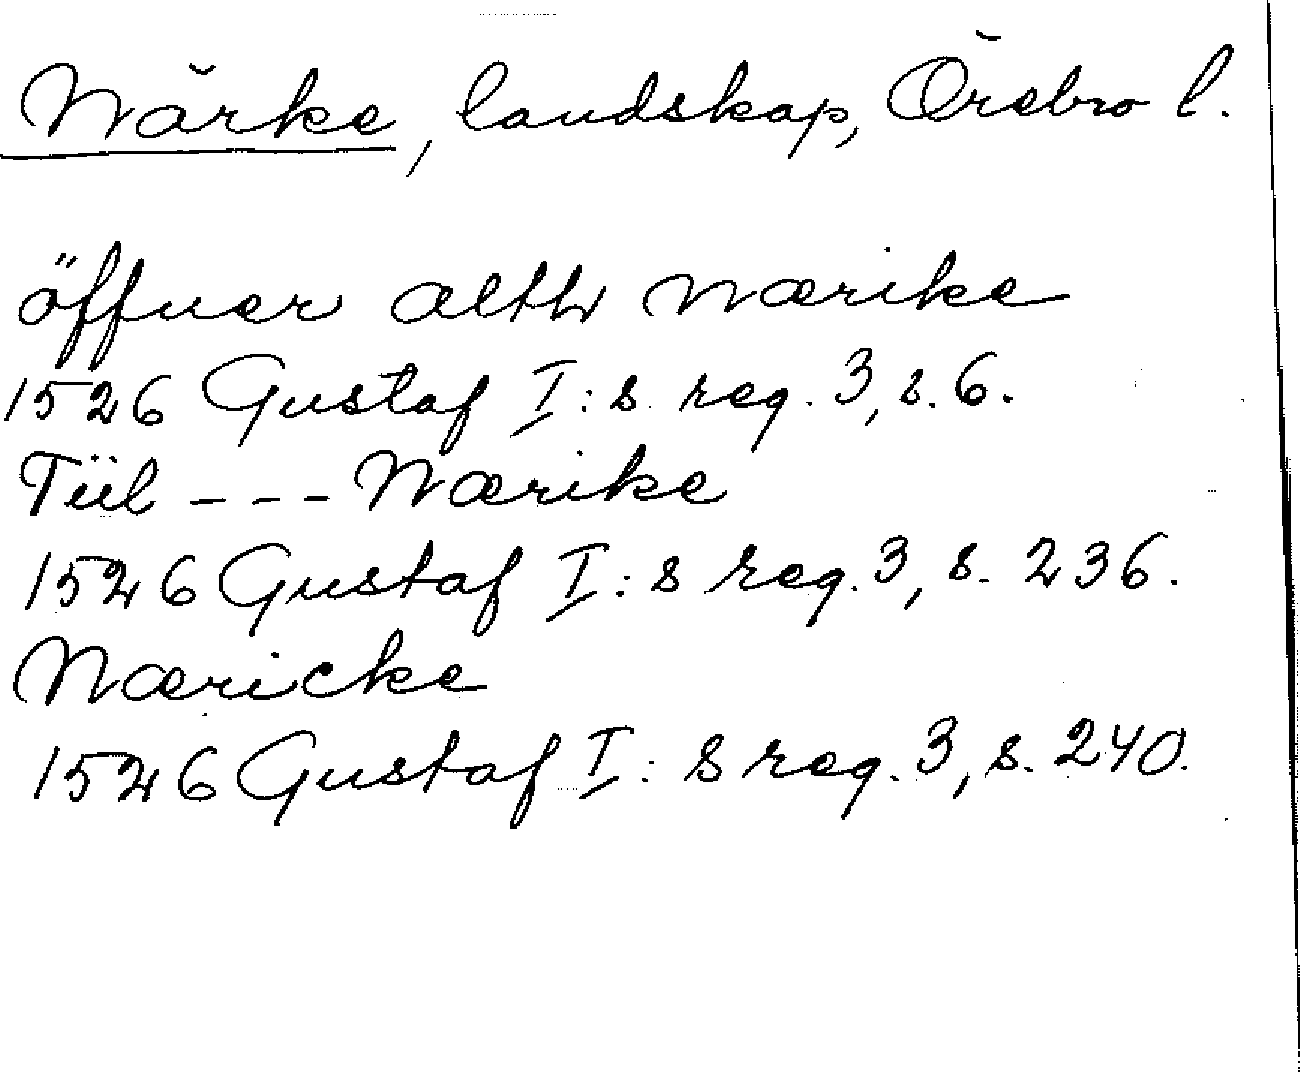 Närke, landskap, Örebro l.
öffuer alth Nærike
1526 Gustaf I:s reg. 3, s. 6.
Tiil - - - Nærike
1526 Gustaf I:s reg. 3, s. 236.
Næricke
1526 Gustaf I:s reg. 3, s. 240.